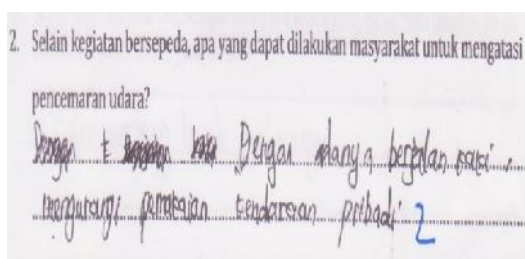 2. Selain kegiatan bersepeda, apa yang dapat dilakukan masyarakat untuk mengatasi
pencemaran udara?
Dengan Dengan adanya berjalan kaki,
mengurangi pemakaian kendaraan pribadi 2